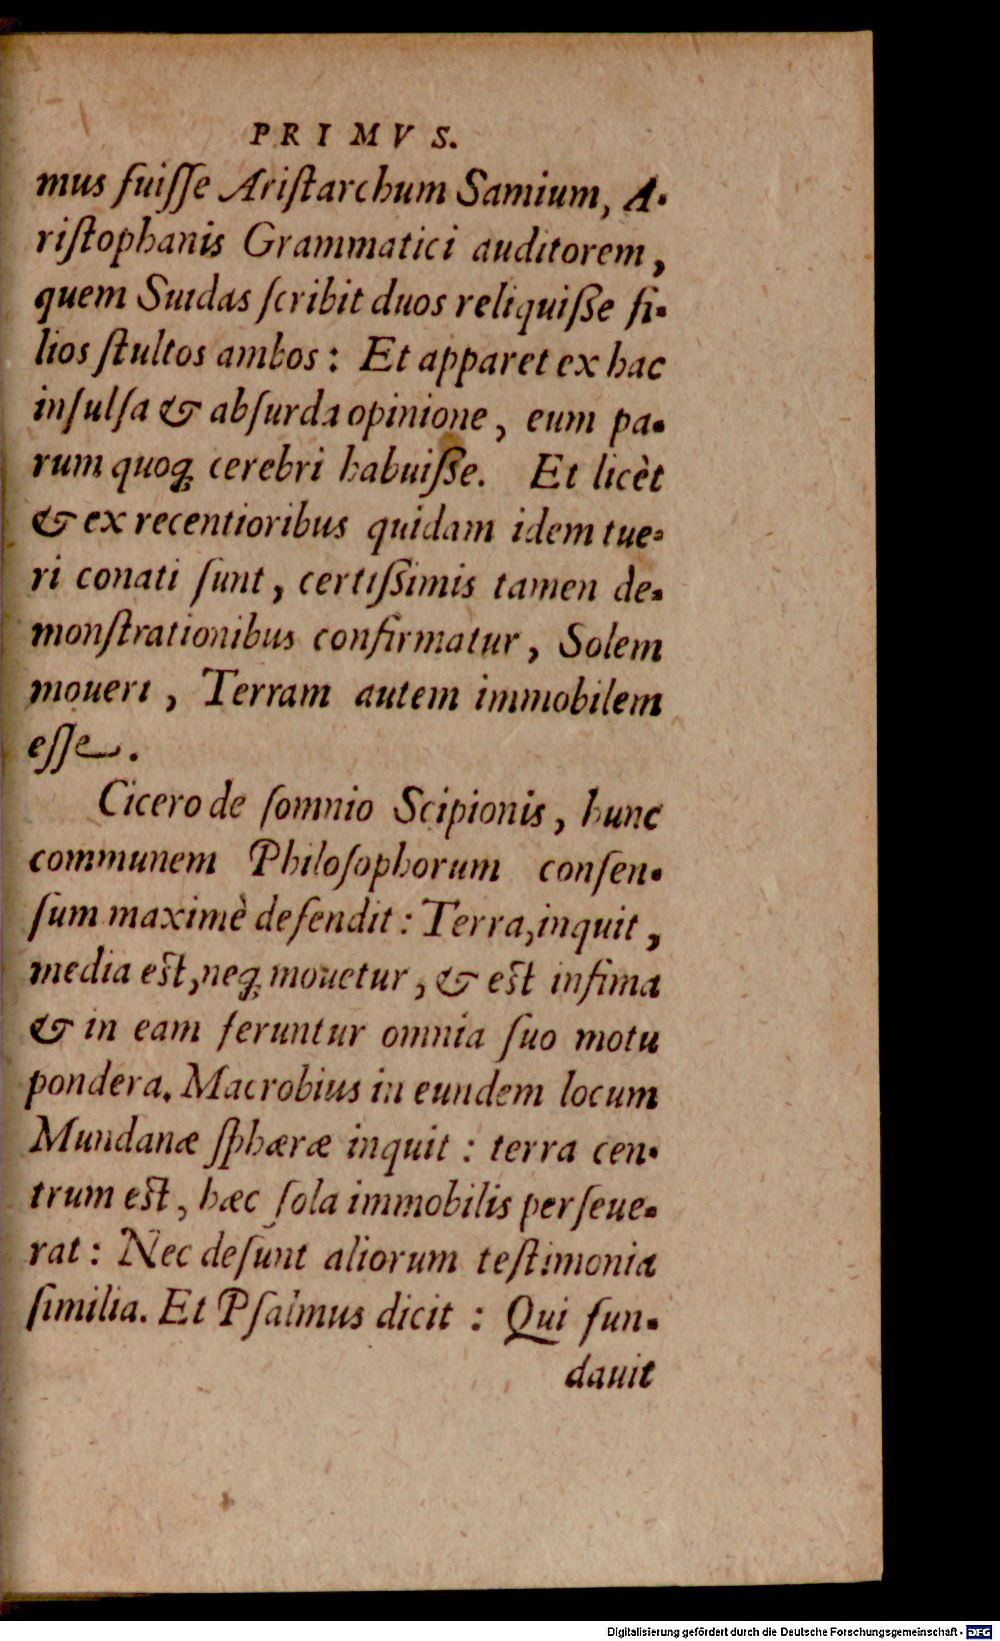 PRIMVS.
mus fuiſſe Ariſtarchum Samium, A-
riſtophanis Grammatici auditorem,
quem Suidas ſcribit duos reliquiſſe fi-
lios ſtultos ambos: Et apparet ex hac
inſulſa & abſurda opinione, eum pa-
rum quoq; cerebri habuiſſe. Et licèt
& ex recentioribus quidam idem tue-
ri conati ſunt, certiſſimis tamen de-
monſtrationibus confirmatur, Solem
moueri, Terram autem immobilem
eſſe.
Cicero de ſomnio Scipionis, hunc
communem Philoſophorum conſen-
ſum maximè defendit: Terra, inquit,
media eſt, neq; mouetur, & eſt infima
& in eam feruntur omnia ſuo motu
pondera. Macrobius in eundem locum
Mundanæ ſphæræ inquit: terra cen-
trum eſt, hæc ſola immobilis perſeue-
rat: Nec deſunt aliorum teſtimonia
ſimilia. Et Pſalmus dicit: Qui fun-
dauit
Digitalisierung gefördert durch die Deutsche Forschungsgemeinschaft - DFG